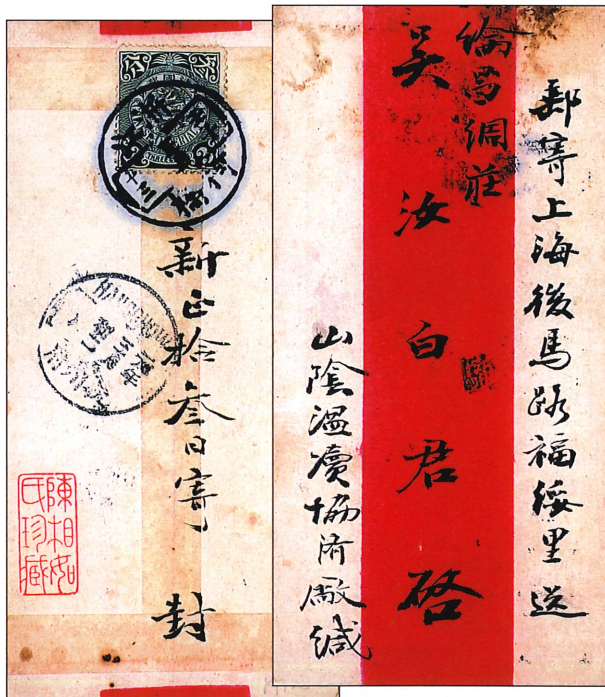 郵寄上海後馬路福綏里送
綸昌綢莊
吳汝白君啓
山陰溫瀆協濟廠緘
新正拾叁日寄 封
陳相如
氏珍藏